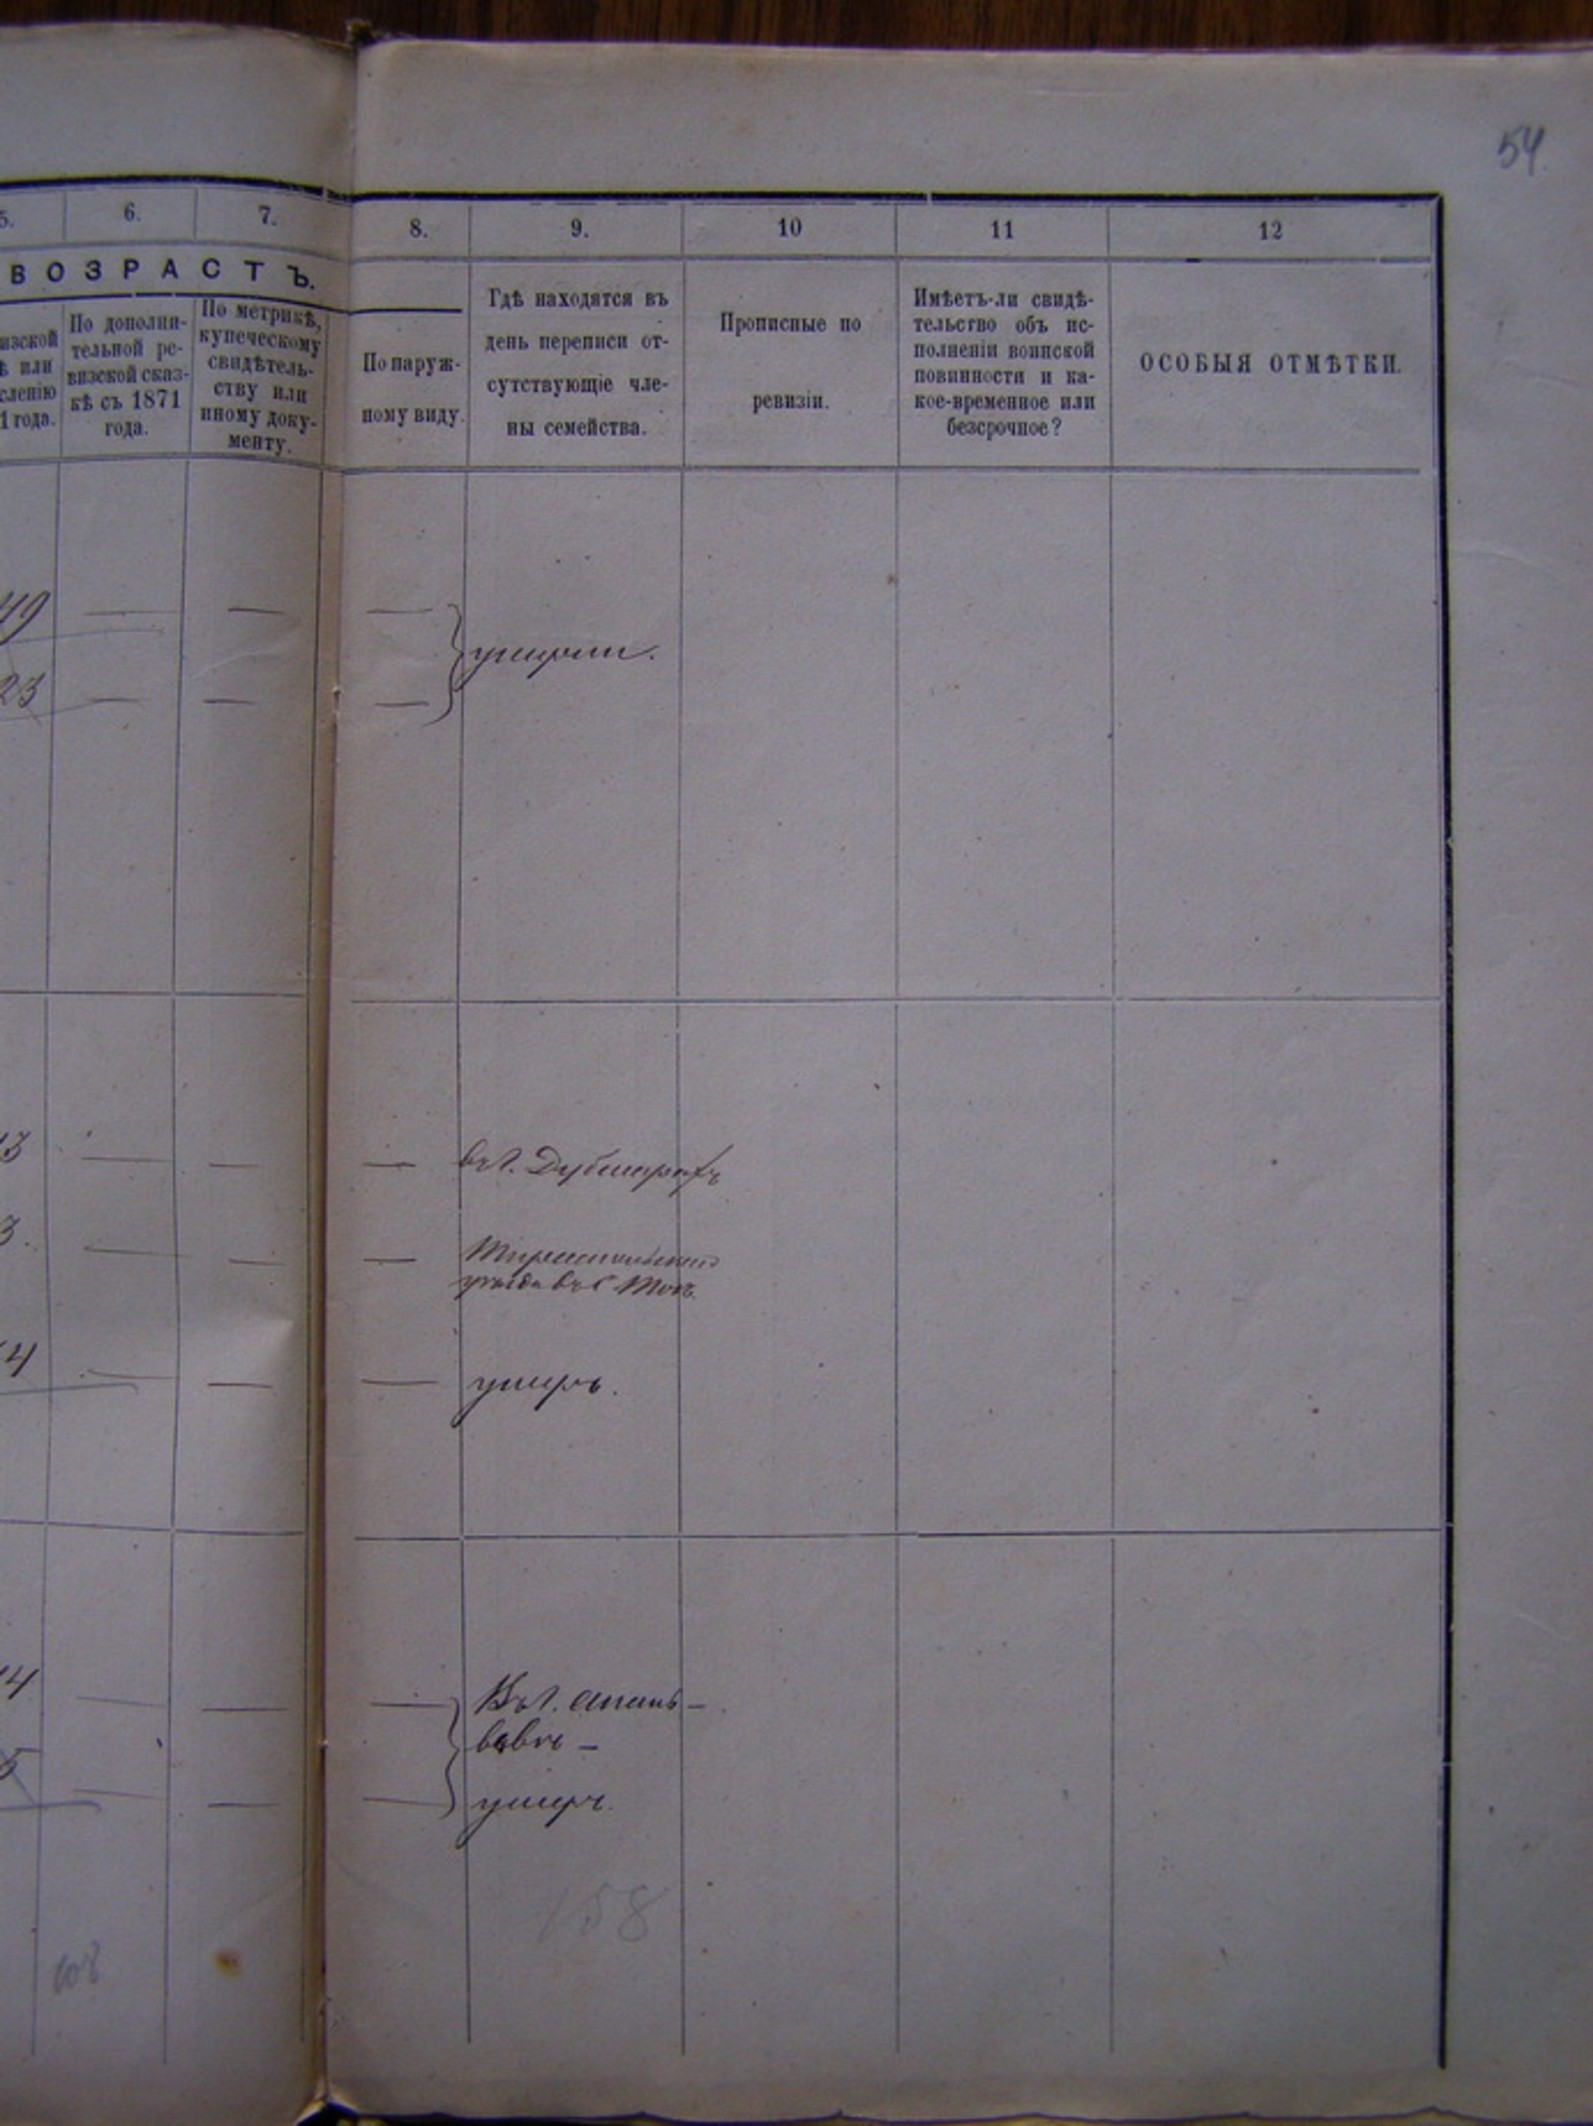 54
5. 6. 7. 8. 9. 10 11 12
ВОЗРАСТЪ.
изской
ѣ или
сленію
1 года.
По дополни-
тельной ре-
визской сказ-
кѣ съ 1871
года.
По метрикѣ,
купеческому
свидѣтель-
ству или
иному доку-
менту.
По наруж-
ному виду.
Гдѣ находятся въ
день переписи от-
сутствующіе чле-
ны семейства.
Прописные по
ревизіи.
Имѣетъ-ли свидѣ-
тельство объ ис-
полненіи воинской
повинности и ка-
кое-временное или
безсрочное?
ОСОБЫЯ ОТМѢТКИ.
49 — — —
умерли.
23 — — —
3 — — — въ г.
3. — — —
уѣзда въ с.
4 — — — умеръ.
14 — — — Въ г. Анань-
вѣвѣ —
5 — — — умеръ.
158